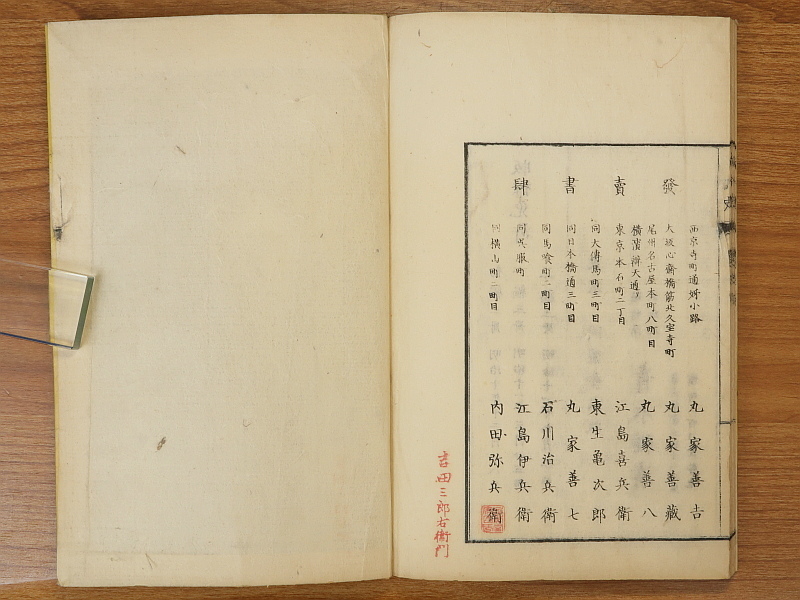 發賣書肆
西京寺町通姉小路 丸家善吉
大坂心齋橋筋北久宝寺町 丸家善藏
尾州名古屋本町八町目 丸家善八
横濱辨天通
東京本石町二丁目 江島喜兵衛
同大傳馬町三町目 東生亀次郎
同日本橋通三町目 丸家善七
同馬喰町二町目 石川治兵衛
同呉服町 江島伊兵衛
同横山町二町目 内田弥兵衛
吉田三郎右衞門